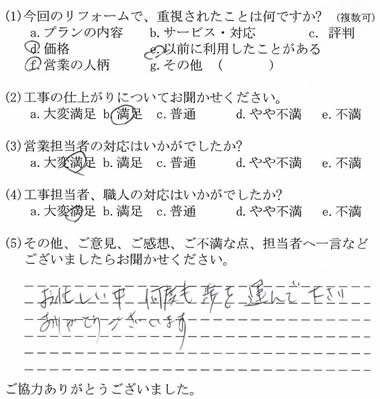 (1)今回のリフォームで、重視されたことは何ですか? (複数可)
a.プランの内容 b.サービス・対応 c. 評判
d.価格 e.以前に利用したことがある
f.営業の人柄 g.その他 ( )
(2)工事の仕上がりについてお聞かせください。
a.大変満足 b.満足 c.普通 d.やや不満 e.不満
(3)営業担当者の対応はいかがでしたか?
a.大変満足 b.満足 c.普通 d.やや不満 e.不満
(4)工事担当者、職人の対応はいかがでしたか?
a.大変満足 b.満足 c.普通 d.やや不満 e.不満
(5)その他、ご意見、ご感想、ご不満な点、担当者へ一言など
ございましたらお聞かせください。
お忙しい中 何度も 歩を 運んで下さり
ありがとうございます
ご協力ありがとうございました。